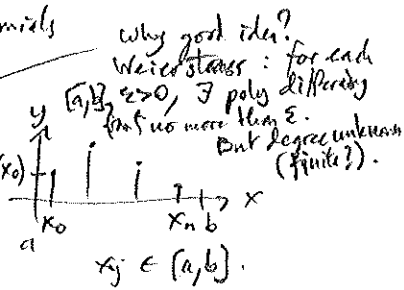 why good idea?
Weierstrass : for each
[a,b], ε>0, ∃ poly differing
from f no more than ε.
But degree unknown
(finite?).
y
(x₀)
x₀
xₙ b
x
a
xⱼ ∈ [a,b].